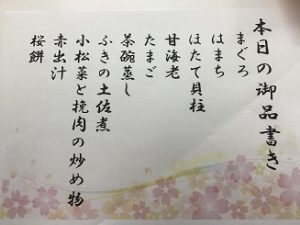 本日の御品書き
まぐろ
はまち
ほたて貝柱
甘海老
たまご
茶碗蒸し
ふきの土佐煮
小松菜と挽肉の炒め物
赤出汁
桜餅